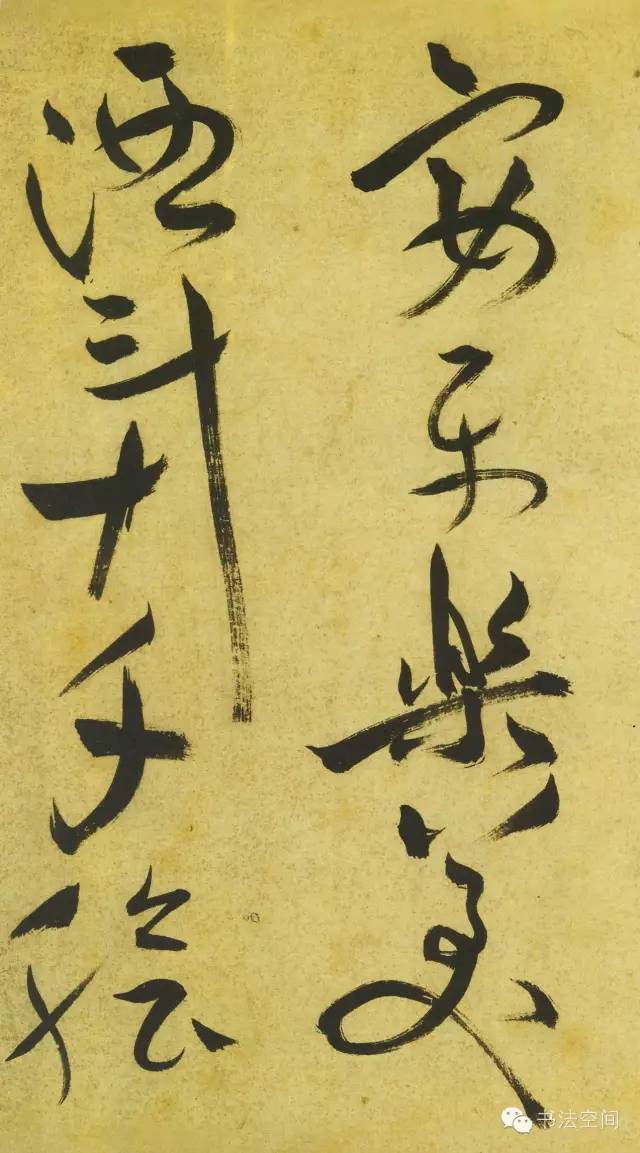 宴平樂美
酒斗十千鱠
书法空间